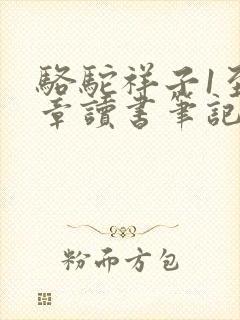 駱駝祥子1至
章讀書筆記
粉而方包